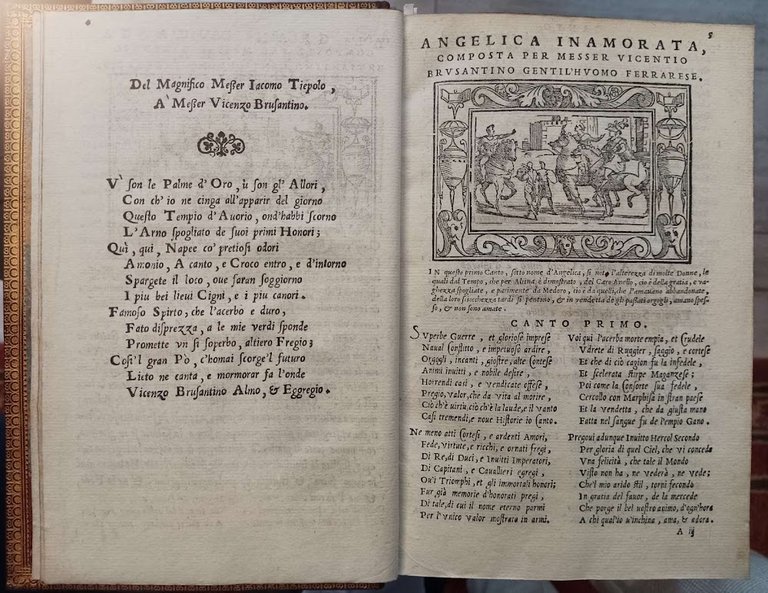 Del Magnifico Messer Iacomo Tiepolo,
A' Messer Vicenzo Brusantino.
V' son le Palme d' Oro, ù son gl' Allori,
Con ch' io ne cinga all'apparir del giorno
Questo Tempio d'Auorio, ond'habbi scorno
L'Arno spogliato de suoi primi Honori;
Quì, qui, Napee co' pretiosi odori
Amonio, A canto, e Croco entro, e d'intorno
Spargete il loco, oue faran soggiorno
I piu bei lieui Cigni, e i piu canori.
Famoso Spirto; che l'acerbo e duro,
Fato disprezza, a le mie verdi sponde
Promette vn sì soperbo, altiero Fregio;
Così'l gran Pò, c'homai scorge'l futuro
Lieto ne canta, e mormorar fa l'onde
Vicenzo Brusantino Almo, & Eggregio.
5
ANGELICA INAMORATA,
COMPOSTA PER MESSER VICENTIO
BRVSANTINO GENTIL'HVOMO FERRARESE.
IN questo primo Canto, sotto nome d'Angelica, si nota l'alterezza di molte Donne, le
quali dal Tempo, che per Alcina è dimostrato, del Caro Anello, cio è della gratia, e va
ghezza spogliate, e parimente da Medoro, cio è da quelli, che l'amauano abbandonate,
della loro sciocchezza tardi si pentono, & in vendetta de gli passati orgogli, amano spes
so, & non sono amate.
CANTO PRIMO.
SVperbe Guerre, et gloriose imprese
Naual conflitto, e impetuoso ardire,
Orgogli, incanti, giostre, alte contese
Animi inuitti, e nobile desire,
Horrendi casi, e vendicate offese,
Pregio, valor, che da vita al morire,
Ciò ch'è uirtù, ciò ch'è la laude, e il vanto
Casi tremendi, e noue Historie io canto.
Ne meno atti cortesi, e ardenti Amori,
Fede, virtute, e ricchi, e ornati fregi,
Di Re, di Duci, e Inuitti Imperatori,
Di Capitani, e Cauallieri egregi,
Ou'i Triomphi, et gli immortali honori;
Far già memorie d'honorati pregi,
Di tale, di cui il nome eterno parmi
Per l'vnico valor mostrato in armi.
Voi qui l'acerba morte empia, et crudele
Vdirete di Ruggier, saggio, e cortese
Et che di ciò cagion fu la infedele,
Et scelerata stirpe Maganzese;
Poi come la consorte sua fedele,
Cercollo con Marphisa in stran paese
Et la vendetta, che da giusta mano
Fatta nel sangue fu de l'empio Gano.
Pregoui adunque Inuitto Hercol Secondo
Per gloria di quel Ciel, che vi concede
Vna felicità, che tale il Mondo
Visto non ha, ne vederà, ne vede;
Che'l mio arido stil, torni fecondo
In gratia del fauor, de la mercede
Che porge il bel uostro animo, d'ogn'hora
A chi qual io u'inchina, ama, & adora.
A iij